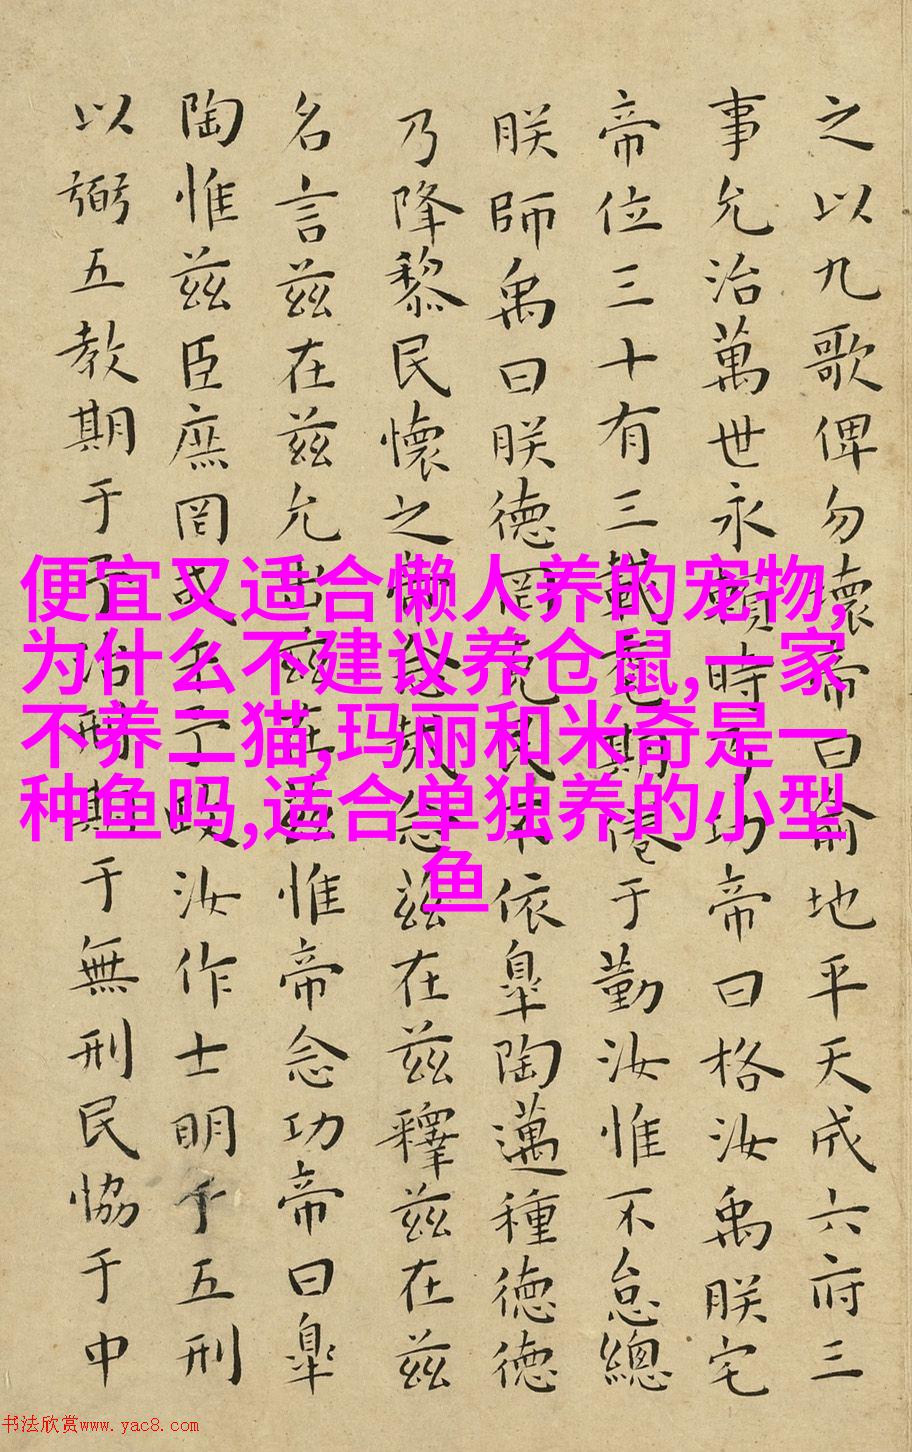 之以九歌俾勿壞帝曰俞地平天成六府三
事允治萬世永賴時乃功帝曰格汝禹朕宅
帝位三十有三載耄期倦于勤汝惟不怠總
朕師禹曰朕德罔克民不依臯陶邁種德德
乃降黎民懷之帝念哉念茲在茲釋茲在茲
名言茲在茲允出茲在茲惟帝念功帝曰臯
陶惟茲臣庶罔或干予政汝作士明于五刑
以弼五教期于予治刑期于無刑民協于中
便宜又适合懒人养的宠物,
为什么不建议养仓鼠,一家
不养二猫,玛丽和米奇是一
种鱼吗,适合单独养的小型
鱼
书法欣赏www.yac8.com